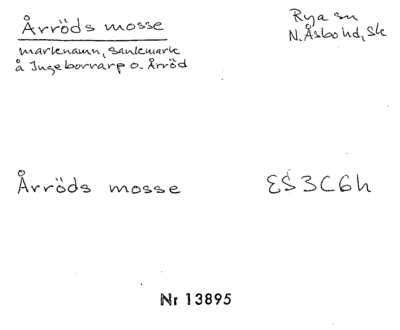 Årröds mosse
Rya sn
marknamn, sankmark
N. Åsbo hd, Sk
å Ingeborrarp o. Årröd
Årröds mosse
ES3C6h
Nr 13895